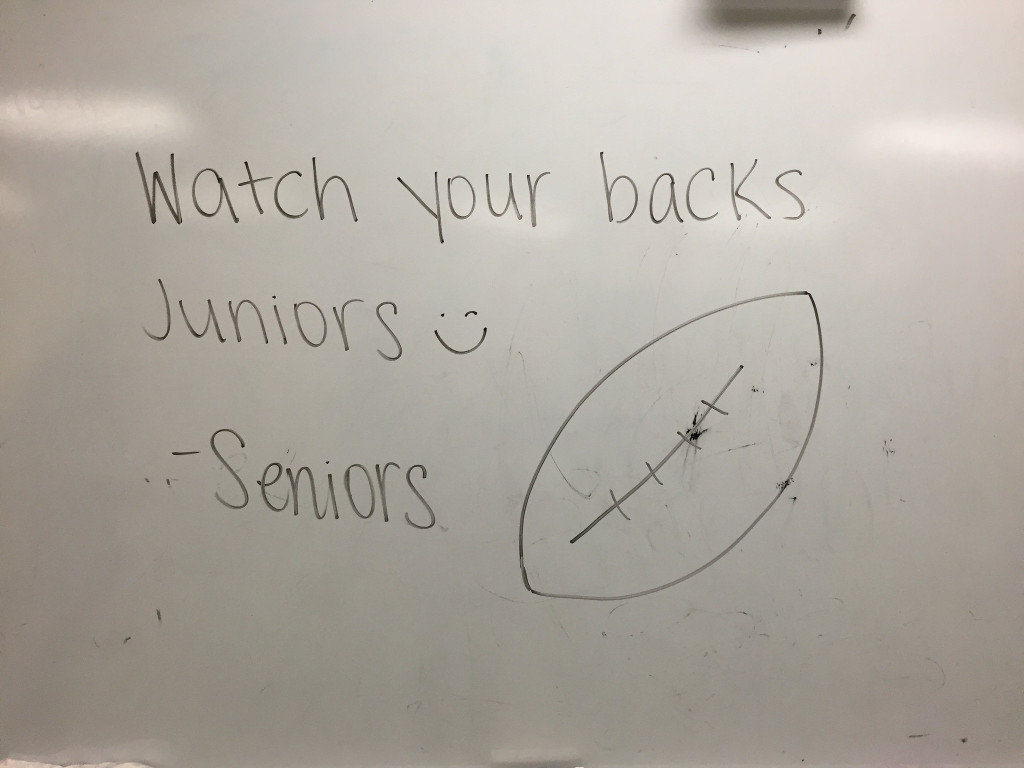 Watch your backs
Juniors :)
-Seniors